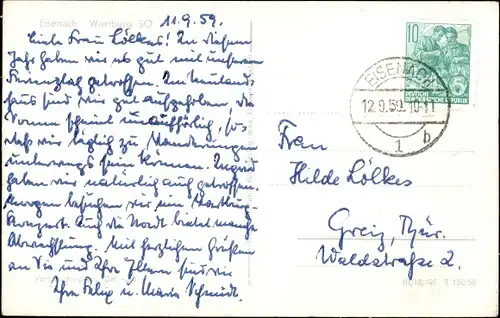 Eisenach, Wartburg SO
11.9.59.
Liebe Frau Lölkes! In diesem
Jahr haben wir es gut mit unserem
Ferienplatz getroffen. Im
haus sind wir gut aufgehoben, die
Sonne scheint unaufhörlich, so
daß wir täglich zu Wanderungen
unterwegs sein können. Jugend
haben wir natürlich auch getroffen.
Morgen besuchen wir ein Wartburg-
konzert. Auch die Stadt bietet manche
Abwechslung. Mit herzlichen Grüßen
an Sie und Ihre Eltern sind wir
Ihre Felix u. Maria Schmidt.
10
DEUTSCHE
DEMOKRATISCHE REPUBLIK
EISENACH
12.9.59.10-11
1 b
Frau
Hilde Lölkes
Greiz, Thür.
Waldstraße 2.